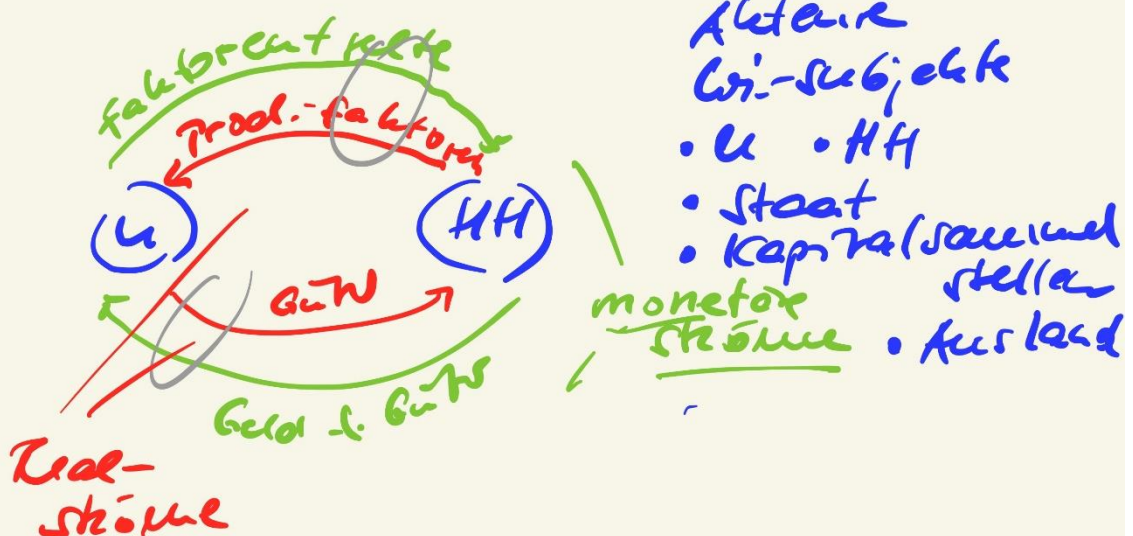 Faktorentgelte
Prod.-faktoren
U
HH
GüW
Geld f. GüW
Real-
ströme
monetäre
ströme
Akteure
Wi-subjekte
• U • HH
• Staat
• Kapitalsammel
stellen
• Ausland